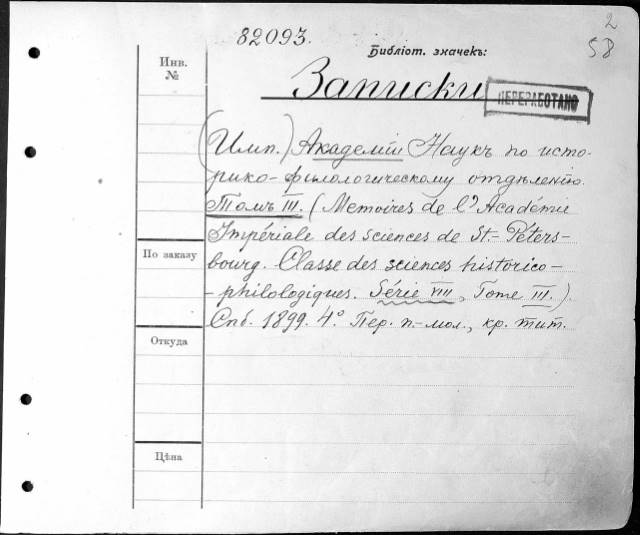 2
58
82093.
Библіот. значекъ:
Инв.
№
Записки
ПЕРЕРАБОТАНО
(Имп.) Академіи Наукъ по исто-
рико-филологическому отдѣленію.
Томъ III. (Memoires de l'Académie
Impériale des sciences de St.-Péters-
bourg. Classe des sciences historico-
-philologiques. Série VIII, Tome III.)
Спб. 1899. 4° Пер. п-мол., кр. тит.
По заказу
Откуда
Цѣна